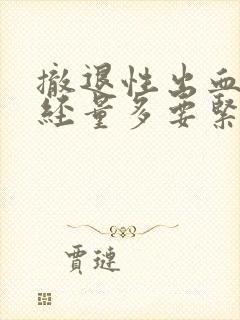 撤退性出血
经量多要緊
賈璉